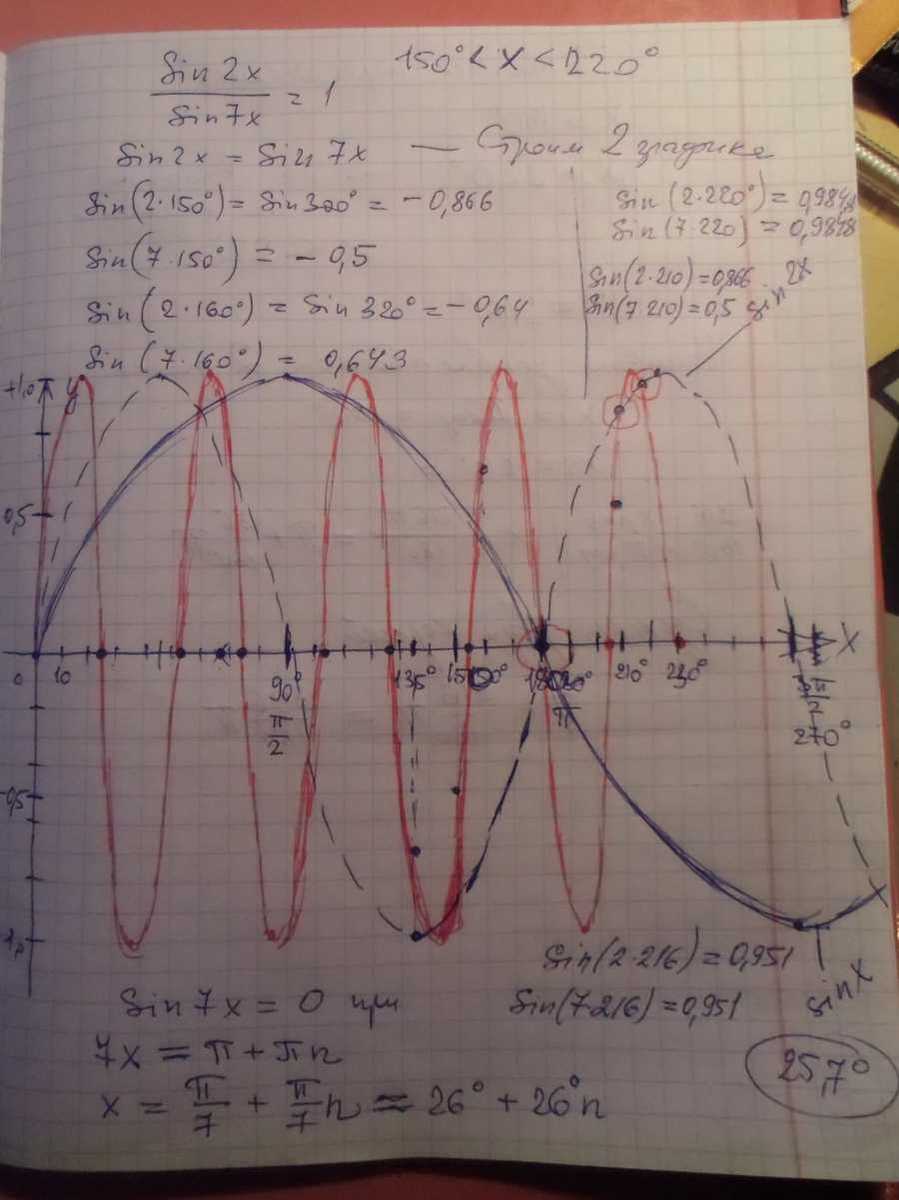 Sin 2x / Sin 7x = 1
150° < x < 220°
Sin 2x = Sin 7x — Строим 2 графика
Sin(2·150°) = Sin 300° = -0,866
Sin(7·150°) = -0,5
Sin(2·160°) = Sin 320° = -0,64
Sin(7·160°) = 0,643
Sin(2·220°) = 0,9848
Sin(7·220) = 0,9848
Sin(2·210) = 0,866
Sin(7·210) = 0,5
Sin 2x
+1,0
y
0,5
0
10
90°
π/2
135°
180°
π
210°
230°
x
270°
-0,5
Sin(2·216) = 0,951
Sin(7·216) = 0,951
sin x
Sin 7x = 0 при
7x = π + πn
x = π/7 + π/7 n ≈ 26° + 26°n
25,7°